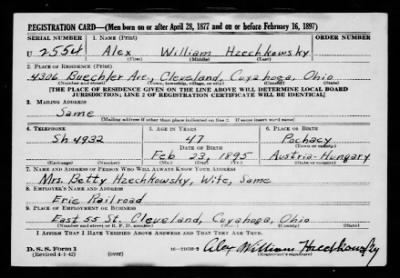 REGISTRATION CARD—(Men born on or after April 28, 1877 and on or before February 16, 1897)
SERIAL NUMBER 1. NAME (Print) ORDER NUMBER
U 2554 Alex William Hzechkowsky
(First) (Middle) (Last)
2. PLACE OF RESIDENCE (Print)
4306 Buechler Ave, Cleveland, Cuyahoga, Ohio
(Number and street) (Town, township, village, or city) (County) (State)
[THE PLACE OF RESIDENCE GIVEN ON THE LINE ABOVE WILL DETERMINE LOCAL BOARD
JURISDICTION; LINE 2 OF REGISTRATION CERTIFICATE WILL BE IDENTICAL]
3. MAILING ADDRESS
Same
(Mailing address if other than place indicated on line 2. If same insert word same)
4. TELEPHONE 5. AGE IN YEARS 6. PLACE OF BIRTH
Sh 4932 47 Pochacy
DATE OF BIRTH (Town or county)
Feb 23, 1895 Austria-Hungary
(Exchange) (Number) (Mo.) (Day) (Yr.) (State or country)
7. NAME AND ADDRESS OF PERSON WHO WILL ALWAYS KNOW YOUR ADDRESS
Mrs. Betty, Hzechkowsky, Wife, Same
8. EMPLOYER'S NAME AND ADDRESS
Erie Railroad
9. PLACE OF EMPLOYMENT OR BUSINESS
East 55 St. Cleveland, Cuyahoga, Ohio
(Number and street or R. F. D. number) (Town) (County) (State)
I AFFIRM THAT I HAVE VERIFIED ABOVE ANSWERS AND THAT THEY ARE TRUE.
D. S. S. Form 1
(Revised 4-1-42) (over) Alex William Hzechkowsky
(Registrant's signature)